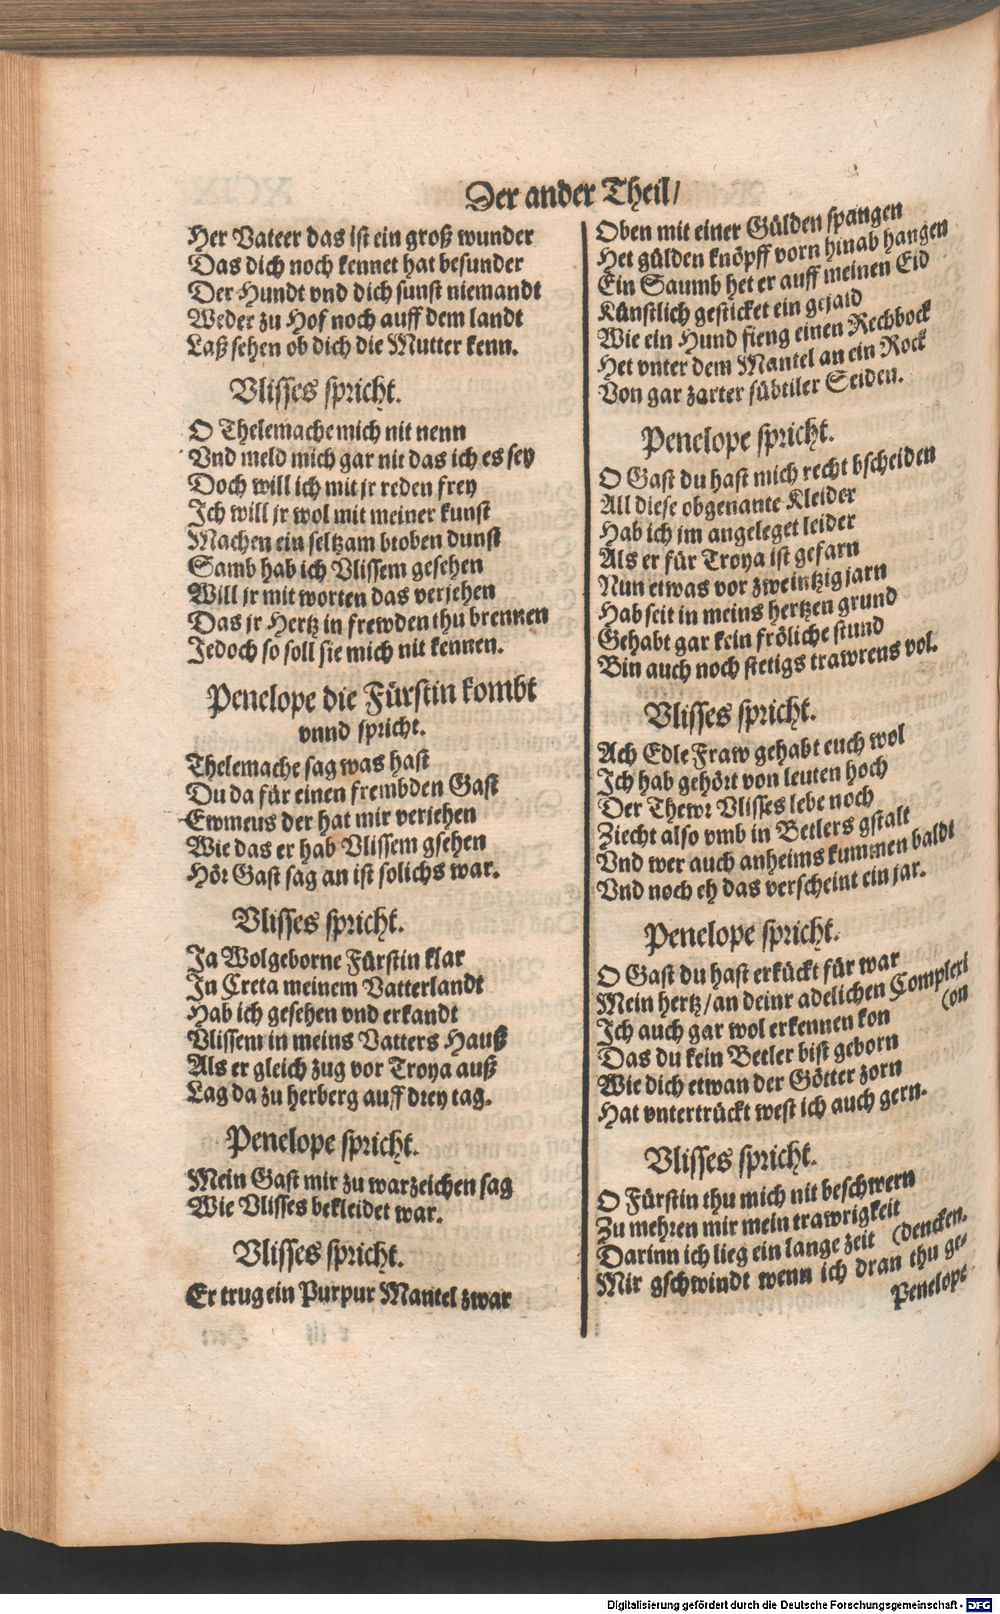 Der ander Theil/
Her Vateer das ist ein groß wunder
Das dich noch kennet hat besunder
Der Hundt vnd dich sunst niemandt
Weder zu Hof noch auff dem landt
Laß sehen ob dich die Mutter kenn.
Vlisses spricht.
O Thelemache mich nit nenn
Vnd meld mich gar nit das ich es sey
Doch will ich mit jr reden frey
Ich will jr wol mit meiner kunst
Machen ein seltzam bloben dunst
Samb hab ich Vlissem gesehen
Will jr mit worten das verjehen
Das jr Hertz in frewden thu brennen
Jedoch so soll sie mich nit kennen.
Penelope die Fürstin kombt
vnnd spricht.
Thelemache sag was hast
Du da für einen frembden Gast
Ewmeus der hat mir veriehen
Wie das er hab Vlissem gsehen
Hör Gast sag an ist solichs war.
Vlisses spricht.
Ja Wolgeborne Fürstin klar
In Creta meinem Vatterlandt
Hab ich gesehen vnd erkandt
Vlissem in meins Vatters Hauß
Als er gleich zug vor Troya auß
Lag da zu herberg auff drey tag.
Penelope spricht.
Mein Gast mir zu warzeichen sag
Wie Vlisses bekleidet war.
Vlisses spricht.
Er trug ein Purpur Mantel zwar
Oben mit einer Gülden spangen
Het gülden knöpff vorn hinab hangen
Ein Saumb het er auff meinen Eid
Künstlich gesticket ein gejaid
Wie ein Hund fieng einen Rechbock
Het vnter dem Mantel an ein Rock
Von gar zarter sübtiler Seiden.
Penelope spricht.
O Gast du hast mich recht bscheiden
All diese obgenante Kleider
Hab ich jm angeleget leider
Als er für Troya ist gefarn
Nun etwas vor zweintzig jarn
Hab seit in meins hertzen grund
Gehabt gar kein fröliche stund
Bin auch noch stetigs trawrens vol.
Vlisses spricht.
Ach Edle Fraw gehabt euch wol
Ich hab gehört von leuten hoch
Der Thewr Vlisses lebe noch
Ziecht also vmb in Betlers gstalt
Vnd wer auch anheims kummen baldt
Vnd noch eh das verscheint ein jar.
Penelope spricht.
O Gast du hast erkückt für war
Mein hertz/an deinr adelichen Complexi
(on
Ich auch gar wol erkennen kon
Das du kein Betler bist geborn
Wie dich etwan der Götter zorn
Hat vntertrückt west ich auch gern.
Vlisses spricht.
O Fürstin thu mich nit beschwern
Zu mehren mir mein trawrigkeit
Darinn ich lieg ein lange zeit (dencken.
Mir gschwindt wenn ich dran thu ge-
Penelope
Digitalisierung gefördert durch die Deutsche Forschungsgemeinschaft - DFG